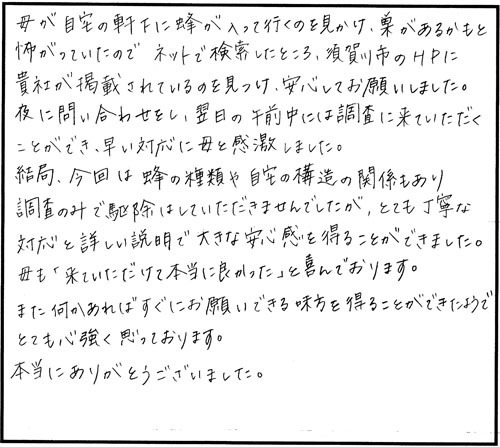 母が自宅の軒下に蜂が入って行くのを見かけ、巣があるかもと
怖がっていたので ネットで検索したところ、須賀川市のHPに
貴社が掲載されているのを見つけ、安心してお願いしました。
夜に問い合わせをし、翌日の午前中には調査に来ていただく
ことができ、早い対応に母と感激しました。
結局、今回は蜂の種類や自宅の構造の関係もあり
調査のみで駆除はしていただきませんでしたが、とても丁寧な
対応と詳しい説明で大きな安心感を得ることができました。
母も「来ていただけて本当に良かった」と喜んでおります。
また何かあればすぐにお願いできる味方を得ることができたようで
とても心強く思っております。
本当にありがとうございました。